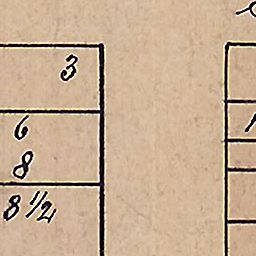 3
6
8
8 1/2